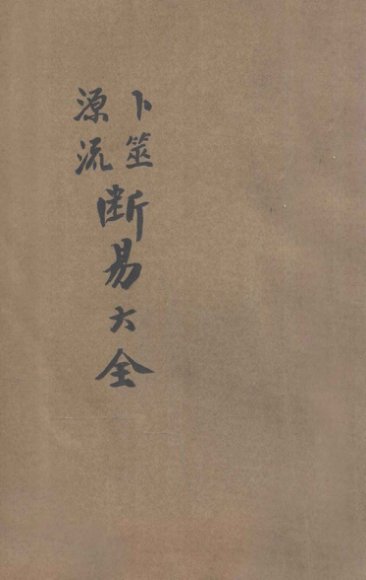 卜筮
源流
断易大全